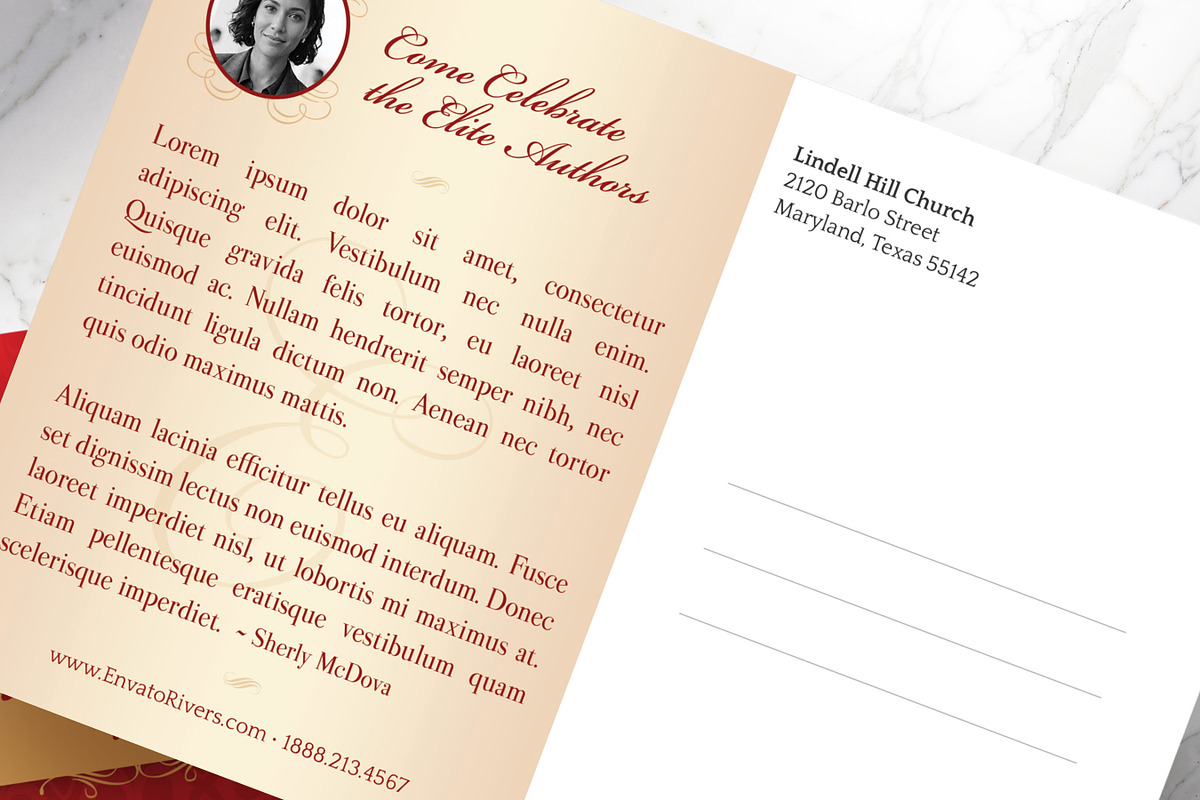 Come Celebrate
the Elite Authors
Lorem ipsum dolor sit amet, consectetur
adipiscing elit. Vestibulum nec nulla enim.
Quisque gravida felis tortor, eu laoreet nisl
euismod ac. Nullam hendrerit semper nibh, nec
tincidunt ligula dictum non. Aenean nec tortor
quis odio maximus mattis.
Aliquam lacinia efficitur tellus eu aliquam. Fusce
set dignissim lectus non euismod interdum. Donec
laoreet imperdiet nisl, ut lobortis mi maximus at.
Etiam pellentesque eratisque vestibulum quam
scelerisque imperdiet. ~ Sherly McDova
www.EnvatoRivers.com • 1888.213.4567
Lindell Hill Church
2120 Barlo Street
Maryland, Texas 55142